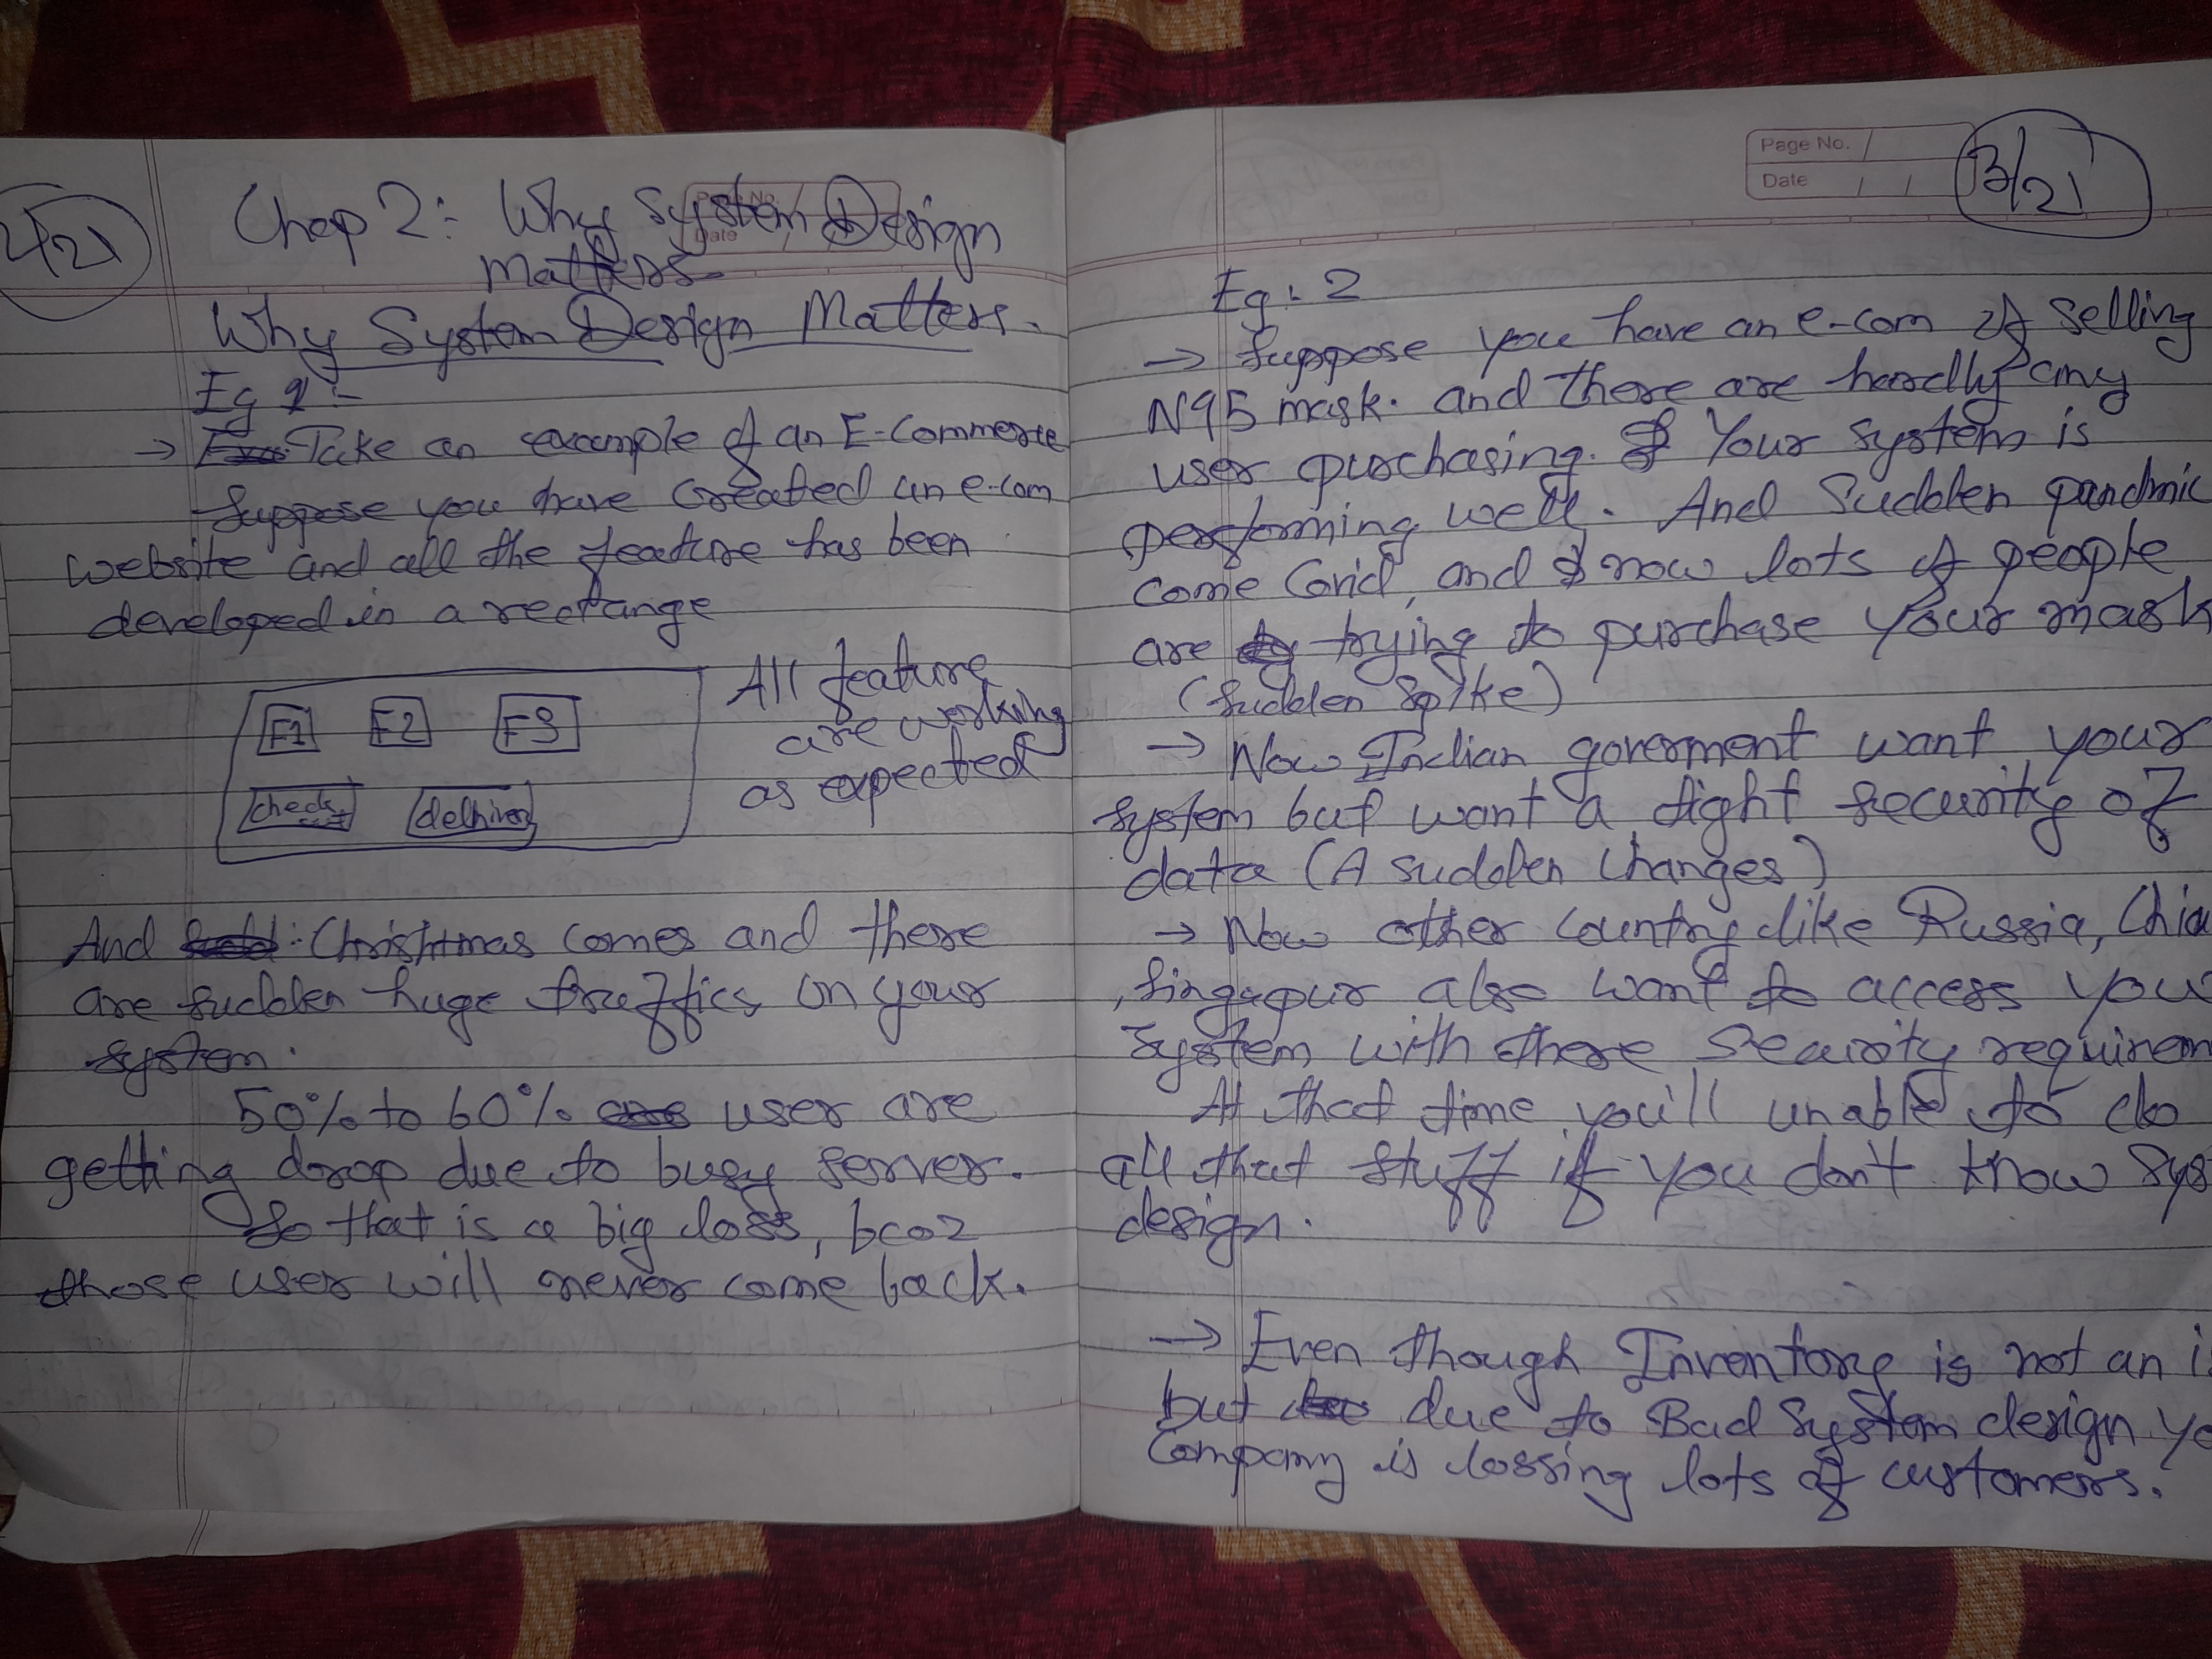 2/21
Chap 2: Why System Design
Matters
Why System Design Matters.
Eg 1:-
→ Take an example of an E-Commerce
Suppose you have Created an e-com
website and all the feature has been
developed in a rectange
F1 F2 F3
check delhivery
All feature
are working
as expected
And Christmas comes and there
are sudden huge traffics in your
system.
50% to 60% user are
getting drop due to busy server.
So that is a big loss, becoz
those user will never come back.
Page No.
Date
3/21
Eg: 2
→ Suppose you have an e-com of selling
N95 mask. and there are hardly any
user purchasing. Your system is
performing well. And Sudden pandmic
come Covid, and now lots of people
are trying to purchase your mask
(sudden spike)
→ Now Indian goverment want your
system but want a tight security of
data (A sudden changes)
→ Now other country like Russia,
singapur also want to access
system with those security
At that time you'll unable to do
all that stuff if you don't know
design.
→ Even though Inventory is not an
but due to Bad System design
company is lossing lots of customers.
Page No.
Date